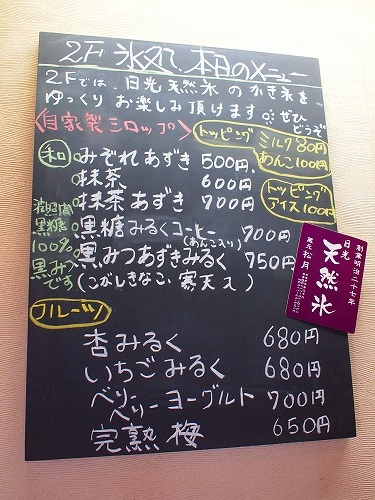 2F 氷処、本日のメニュー
2Fでは、日光天然氷のかき氷を、
ゆっくりお楽しみ頂けます。ぜひ
どうぞ
〈自家製シロップ〉
トッピング ミルク80円
あんこ100円
和 みぞれあずき 500円
抹茶 600円
抹茶あずき 700円
トッピング
アイス100円
黒糖みるくコーヒー 700円
(あんこ入り)
黒みつあずきみるく 750円
(こがしきなこ、寒天入)
黒糖
100%
黒みつ
です
フルーツ
杏みるく 680円
いちごみるく 680円
ベリーベリーヨーグルト 700円
完熟梅 650円
創業明治二十七年
日光
天然氷
蔵元 松月